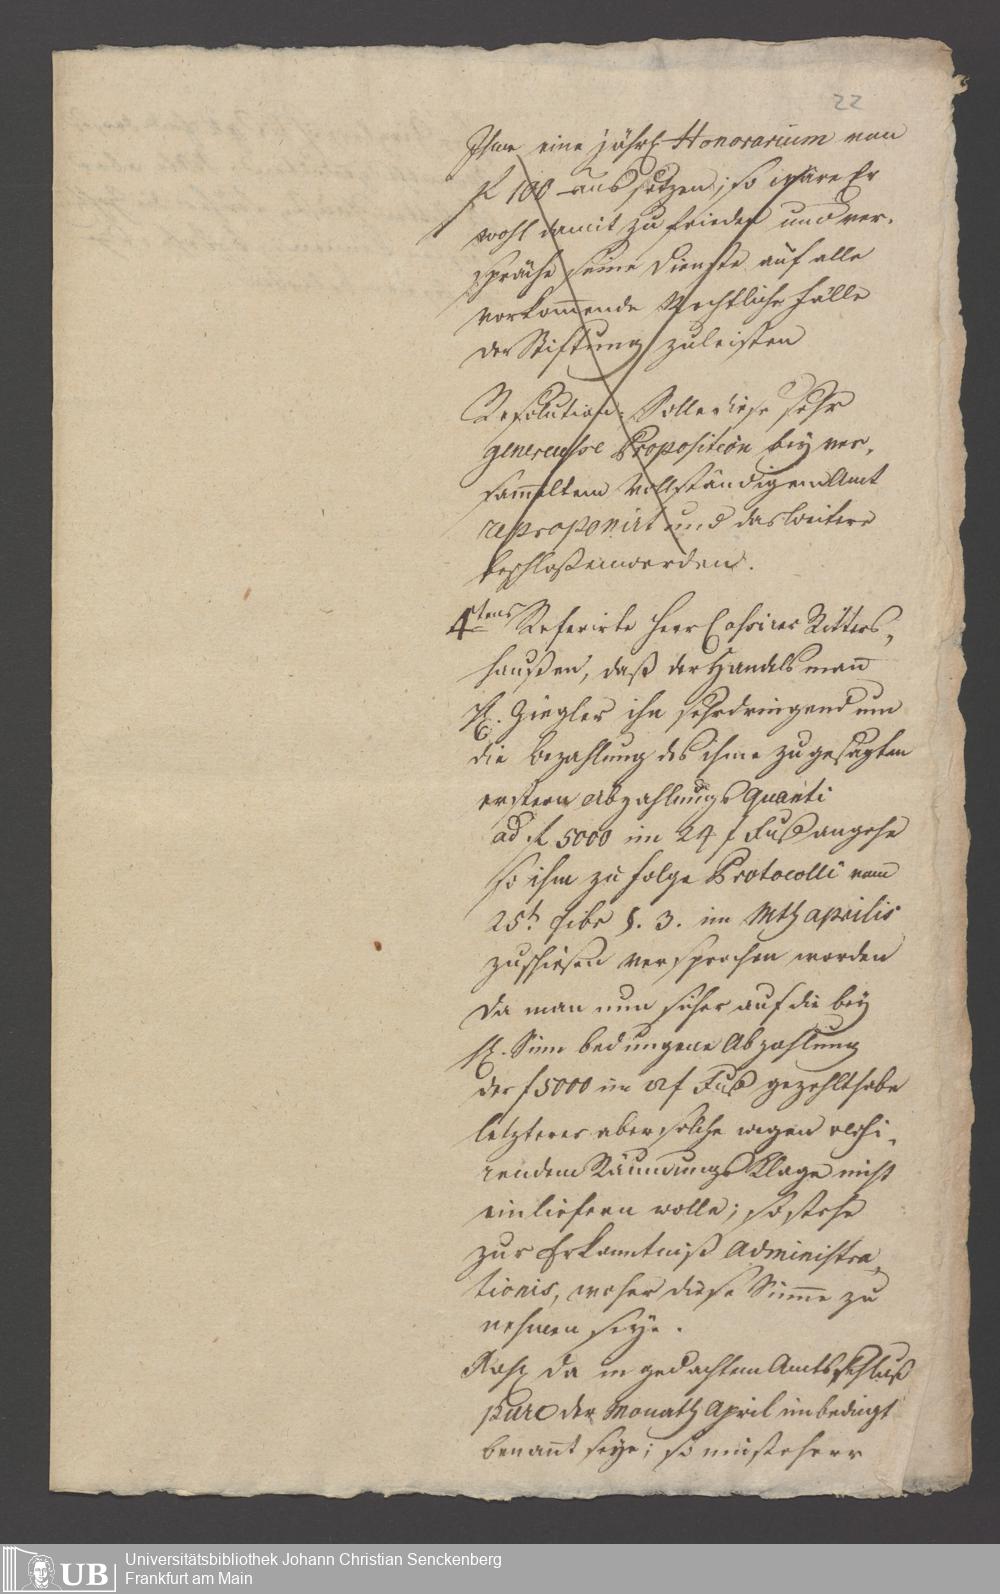 22
Ihme eine jährl. Honorarium von
f 100 aussetzen; so wäre Er
wohl damit zufrieden und ver-
spräche seine Dienste auf alle
vorkom̄ende Rechtliche Fälle
der Stiftung zuleisten
Resolution: Solle diese sehr
genereuse Proposition bey ver-
sam̄eltem Vollständigem Amt
reproponirt und das Weitere
beschloßen werden.
4tens Referirte Herr Cassirer Ritters-
haußen, daß der Handelsman̄
H. Ziegler ihn sehr dringend um
die Bezahlung des ihme zugesagten
erstern Abzahlungs Quanti
ad f 5000 im 24 f Fuß angehe
so ihm zu folge Protocolli vom
25t. §. 3. im Mth aprilis
zuschiesen versprochen worden
Da man nun sicher auf die bey
H. Sinn bedungene Abzahlung
der f 5000 im Fuß gezehlt habe
letzterer aber solche wegen
Räumungs Klage nicht
einliefern wolle; so stehe
zur Erkanntniß Administra-
tionis, woher diese Sum̄e zu
nehmen seye.
Resp. da in gedachtem Amtsschluß
pure der Monath April unbedingt
benan̄t seye; so müste Herr
UB
Universitätsbibliothek Johann Christian Senckenberg
Frankfurt am Main